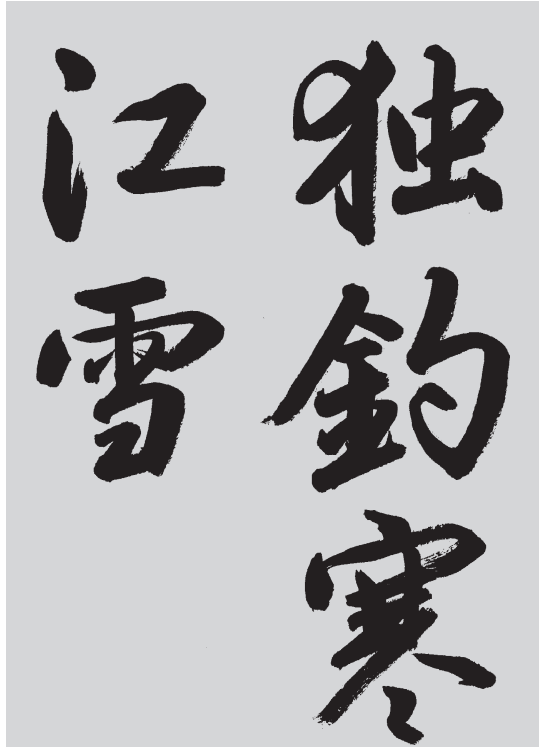 独釣寒
江雪